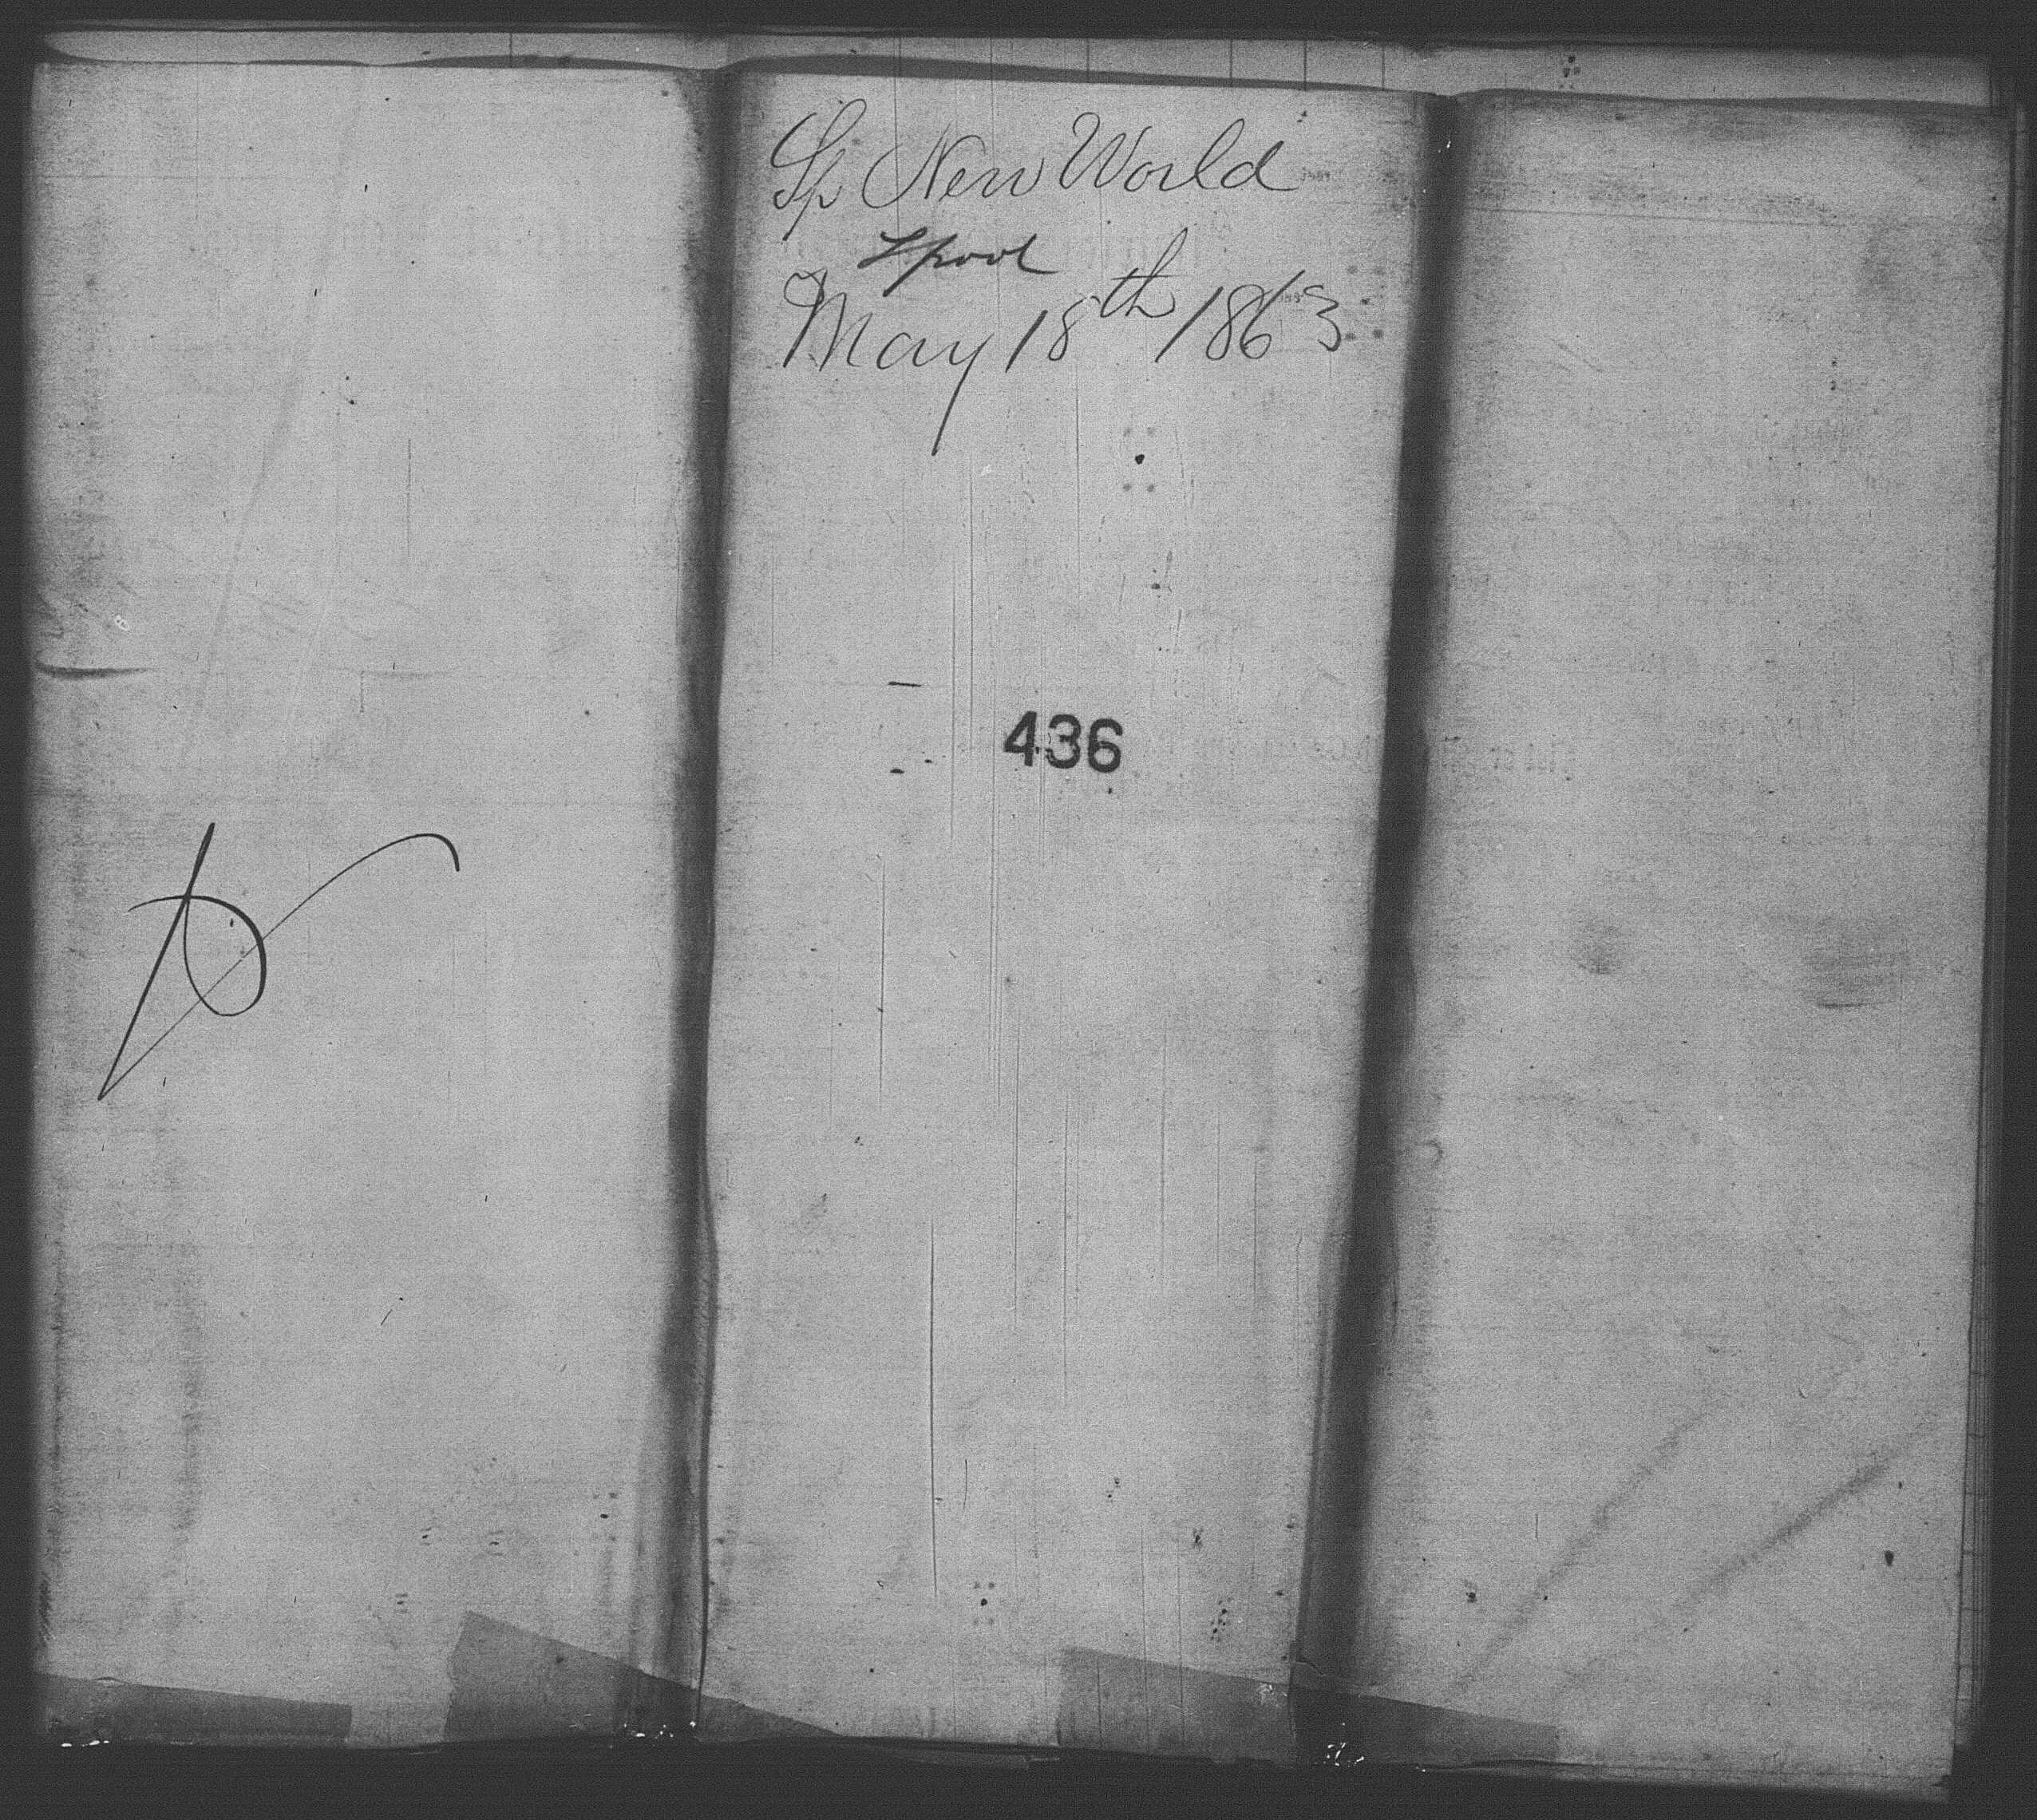 Sp New World
Lpool
May 18th 1863
436